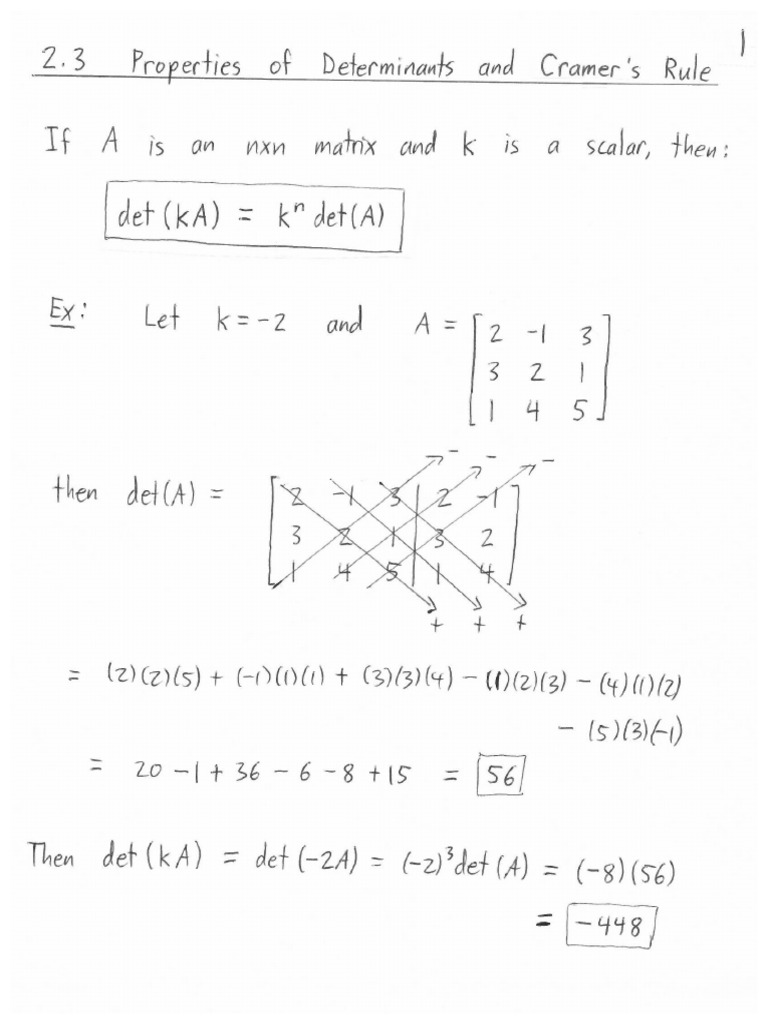 1
2.3 Properties of Determinants and Cramer's Rule
If A is an nxn matrix and k is a scalar, then:
det(kA) = kⁿ det(A)
Ex: Let k = -2 and A = [2 -1 3
3 2 1
1 4 5]
then det(A) = [2 -1 3 | 2 -1
3 2 1 | 3 2
1 4 5 | 1 4]
- - -
+ + +
= (2)(2)(5) + (-1)(1)(1) + (3)(3)(4) - (1)(2)(3) - (4)(1)(2)
- (5)(3)(-1)
= 20 - 1 + 36 - 6 - 8 + 15 = 56
Then det(kA) = det(-2A) = (-2)³det(A) = (-8)(56)
= -448